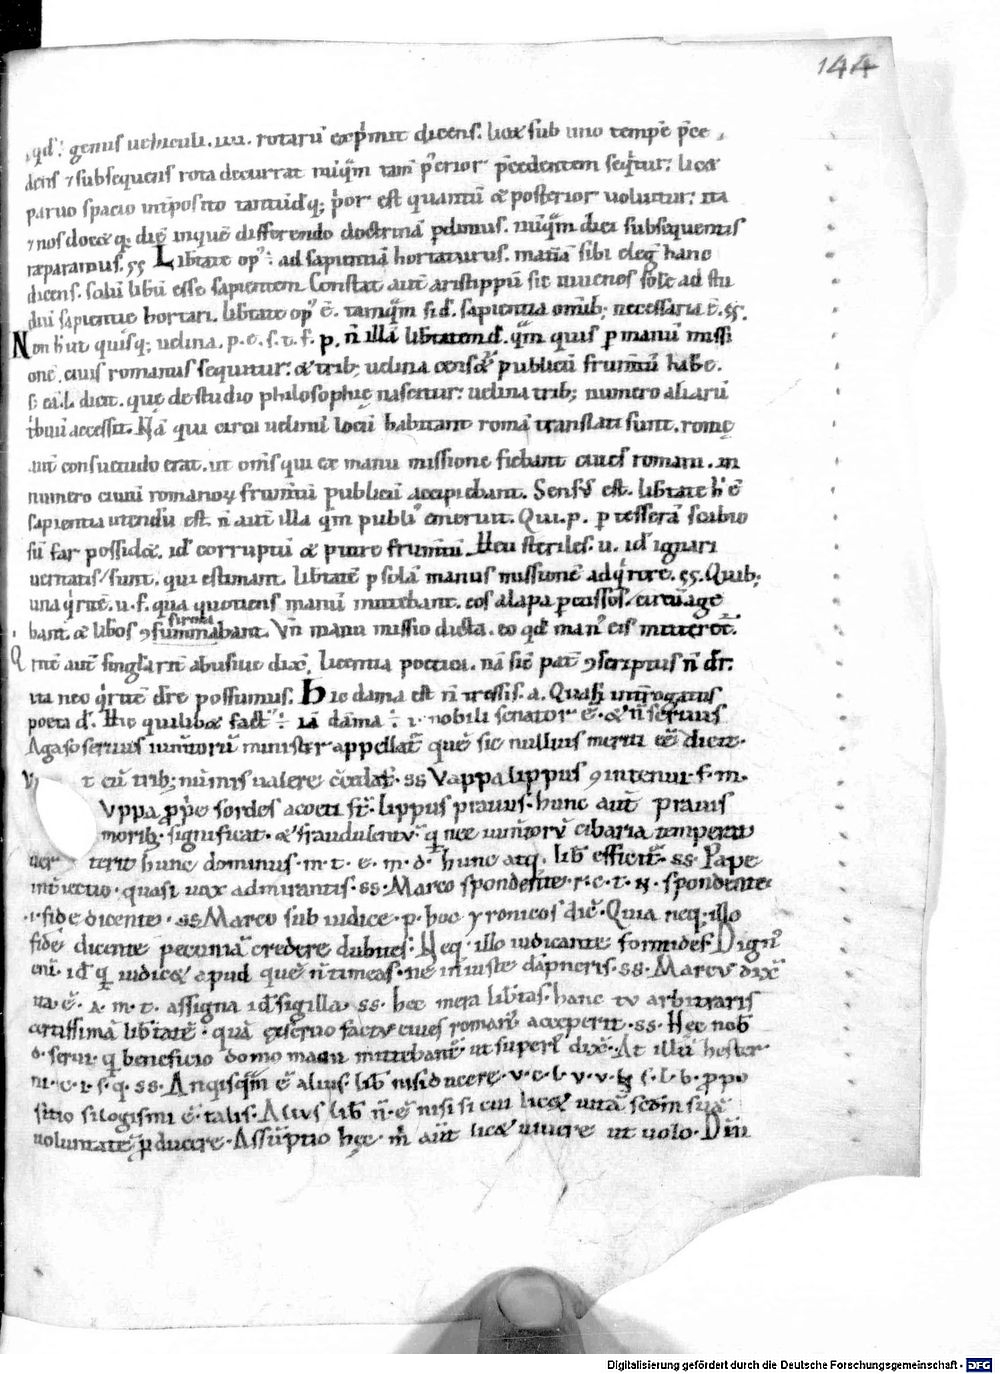 144
qđ. genus uehiculi .iiii. rotarū exp̄mit dicens. licet sub uno tempe p̄ce
dens ⁊ subsequens rota decurrat nūq̄m tam̄ p̄cedentem seq̄tur. licet
paruo spacio inposito tantūdq; p̄or est quantū & posterior uoluitur. ita
⁊ nos docet q; diē inquē differendo doctrinā pdimus. nūq̄m diei subsequentis
reparamus. ss Libtate op᾿. ad sapientiā hortaturus. matīā sibi eleḡ hanc
dicens. solū libū esse sapientem Constat aut̄ aristippū sic iuuenes sole ad stu
diū sapientie hortari. libtate op᾿ ē. tamq̄m si đ. sapientia omib; necessaria ē. ss.
Non h̄ ut quisq; uelina. p. e. s. t. f. p. n̄ illā libtatem đ. q̄m quis p manū missi
onē. ciuis romanus sequitur. & trib; uelina publicū frum̄tū habe.
dicit. que de studio philosophię nascitur. uelina trib; numero aliarū
tribuū accessit. Nā qui circa uelinū locū habitant romā translati sunt. romę
aut̄ consuetudo erat. ut om̄s qui ex manu missione fiebant ciues romani. in
numero ciuiū romanoꝝ frum̄tū publicū accipiebant. Sensꝰ est. libtate h̄ ē
sapientia utendū est. n̄ aut̄ illa q̄m publiꝰ emeruit. Qui. p. p tesserā scabio
sū far possidet. id᾿ corruptū & putre frum̄tū. Heu steriles. u. id᾿ ignari
ueritatis sunt. qui estimant libtatē p solā manus missionē adq̄rere. ss. Quib;
una q̄rite. u. f. qua quotiens manū mittebant. eos alapa pcussos. circūage
bant. & libos ⁊ firmabant. Vn̄ manu missio dicta. eo qđ manꝰ eis mitteret.
aut̄ singlarit̄ abusiue dix̄. licentia poetica. nā sic pat̄ ⁊ scriptus n̄ dr̄.
ita nec q̄rite dr̄e possumus. Hic dama est n̄ tressis. a. Quasi int̄rogatus
poeta đ. Hic quilibet iā dama .i. nobili senator ē. & n̄ seruus
Agaso seruus iumtorū minister appellat̄ quē sic nullius meriti eē dicit.
t cū trib; nūmis ualere ss Vappa lippus ⁊ in tenui. f. m.
Vppa p̄p̄e sordes aceti s̄t. lippus prauus. hunc aut̄ prauis
morib. significat. & fraudulentū. q̄ nec iumtorū cibaria temperet
terit hunc dominus. m. t. e. m. đ. hunc atq. lib̄ efficit̄. ss. Pape
int̄iectio. quasi uax admirantis. ss. Marco spondente. r. c. t. n. spondente.
.i. fidē dicente. ss Marco sub iudice. p. hoc yronicos dic̄. Quia neq. illo
fidē dicente pecuniā credere dubites. Neq. illo iudicante formides. Dignꝰ
eni. id᾿ q̄ iudicet apud quē n̄ timeas. ne iniuste dāpneris. ss. Marcꝰ dix̄
ita ē. a. m. t. assigna id᾿ sigilla. ss. hec mera libtas. hanc tu arbitraris
certissimā libtatē. quā ex seruo factꝰ ciues romanꝰ acceperit. ss. Hęc nob̄
đ. serui. q̄ beneficio domo manu mittebant̄. ut superī dix̄. At illū hester
ni. c. i. s. q. ss. An quisq̄m ē alius. lib̄ nisi ducere. v. c. l. v. v. s. l. b. p̄po
sitio silogismi ē. talis. Alius lib̄ n̄. ē nisi si cui licet uitā scdm suā
voluntatē p̄ducere. Assūptio hęc. m̄ aut̄ licet uiuere ut uolo. Diui
Digitalisierung gefördert durch die Deutsche Forschungsgemeinschaft - DFG